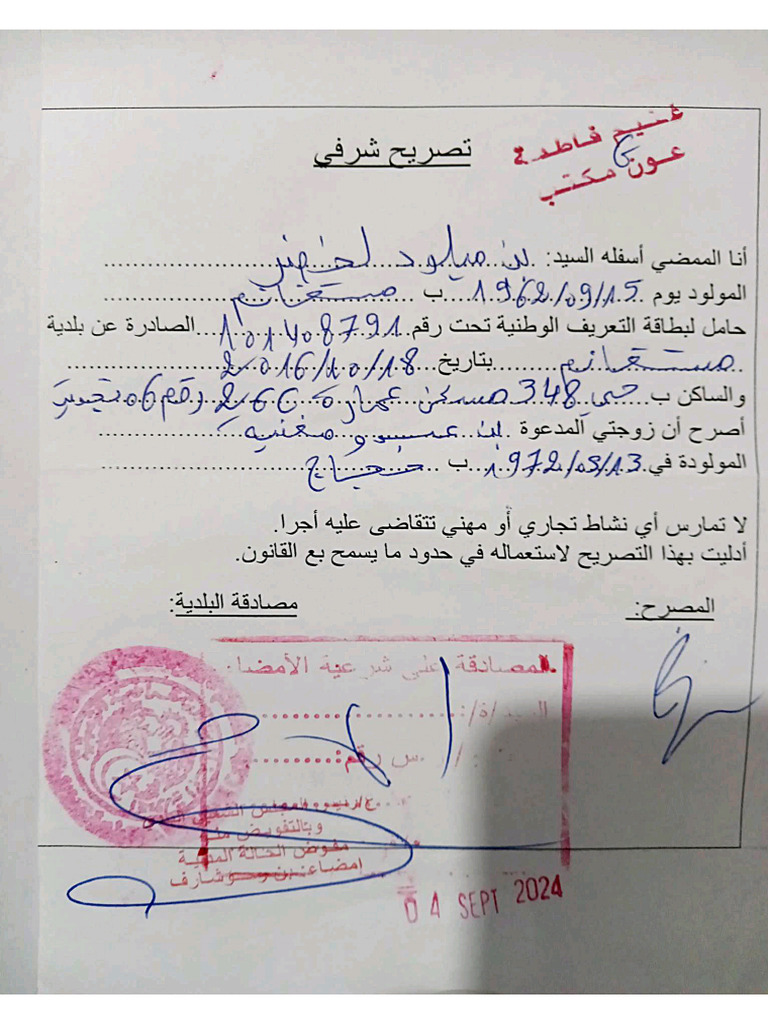 غنيم فاطمة
عون مكتب
تصريح شرفي
أنا الممضي أسفله السيد: بن ميلود لخضر
المولود يوم 1962/09/15 ب مستغانم
حامل لبطاقة التعريف الوطنية تحت رقم 101408791 الصادرة عن بلدية
مستغانم بتاريخ 2016/10/18
والساكن ب حي 348 مسكن عمارة رقم 06
أصرح أن زوجتي المدعوة بن عبو مغنية
المولودة في 1972/03/13 ب حجاج
لا تمارس أي نشاط تجاري أو مهني تتقاضى عليه أجرا.
أدليت بهذا التصريح لاستعماله في حدود ما يسمح بع القانون.
المصرح:
مصادقة البلدية:
المصادقة على شرعية الأمضاء
السيد/ة:
رقم:
ع/رئيس المجلس الشعبي البلدي
وبالتفويض منه
مفوض الحالة المدنية
04 SEPT 2024